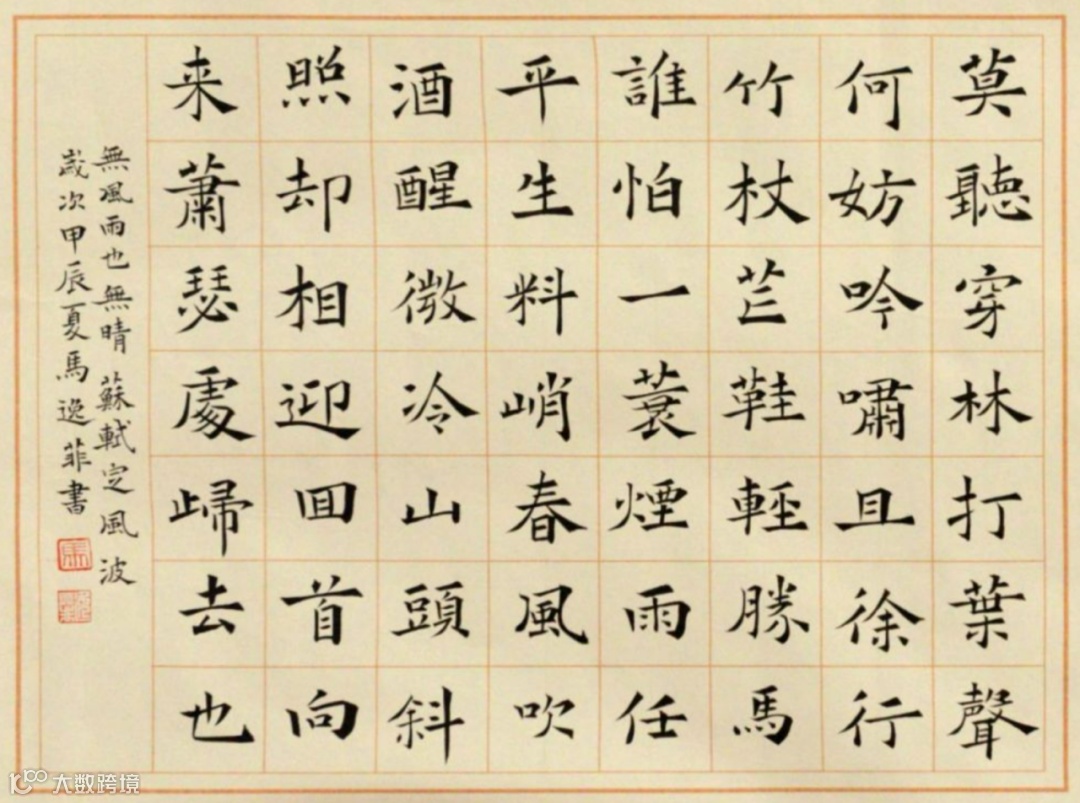 莫聽穿林打葉聲
何妨吟嘯且徐行
竹杖芒鞋輕勝馬
誰怕一蓑煙雨任
平生料峭春風吹
酒醒微冷山頭斜
照却相迎回首向
来蕭瑟處歸去也
無風雨也無晴 蘇軾定風波
歲次甲辰夏馬逸菲書
大数跨境